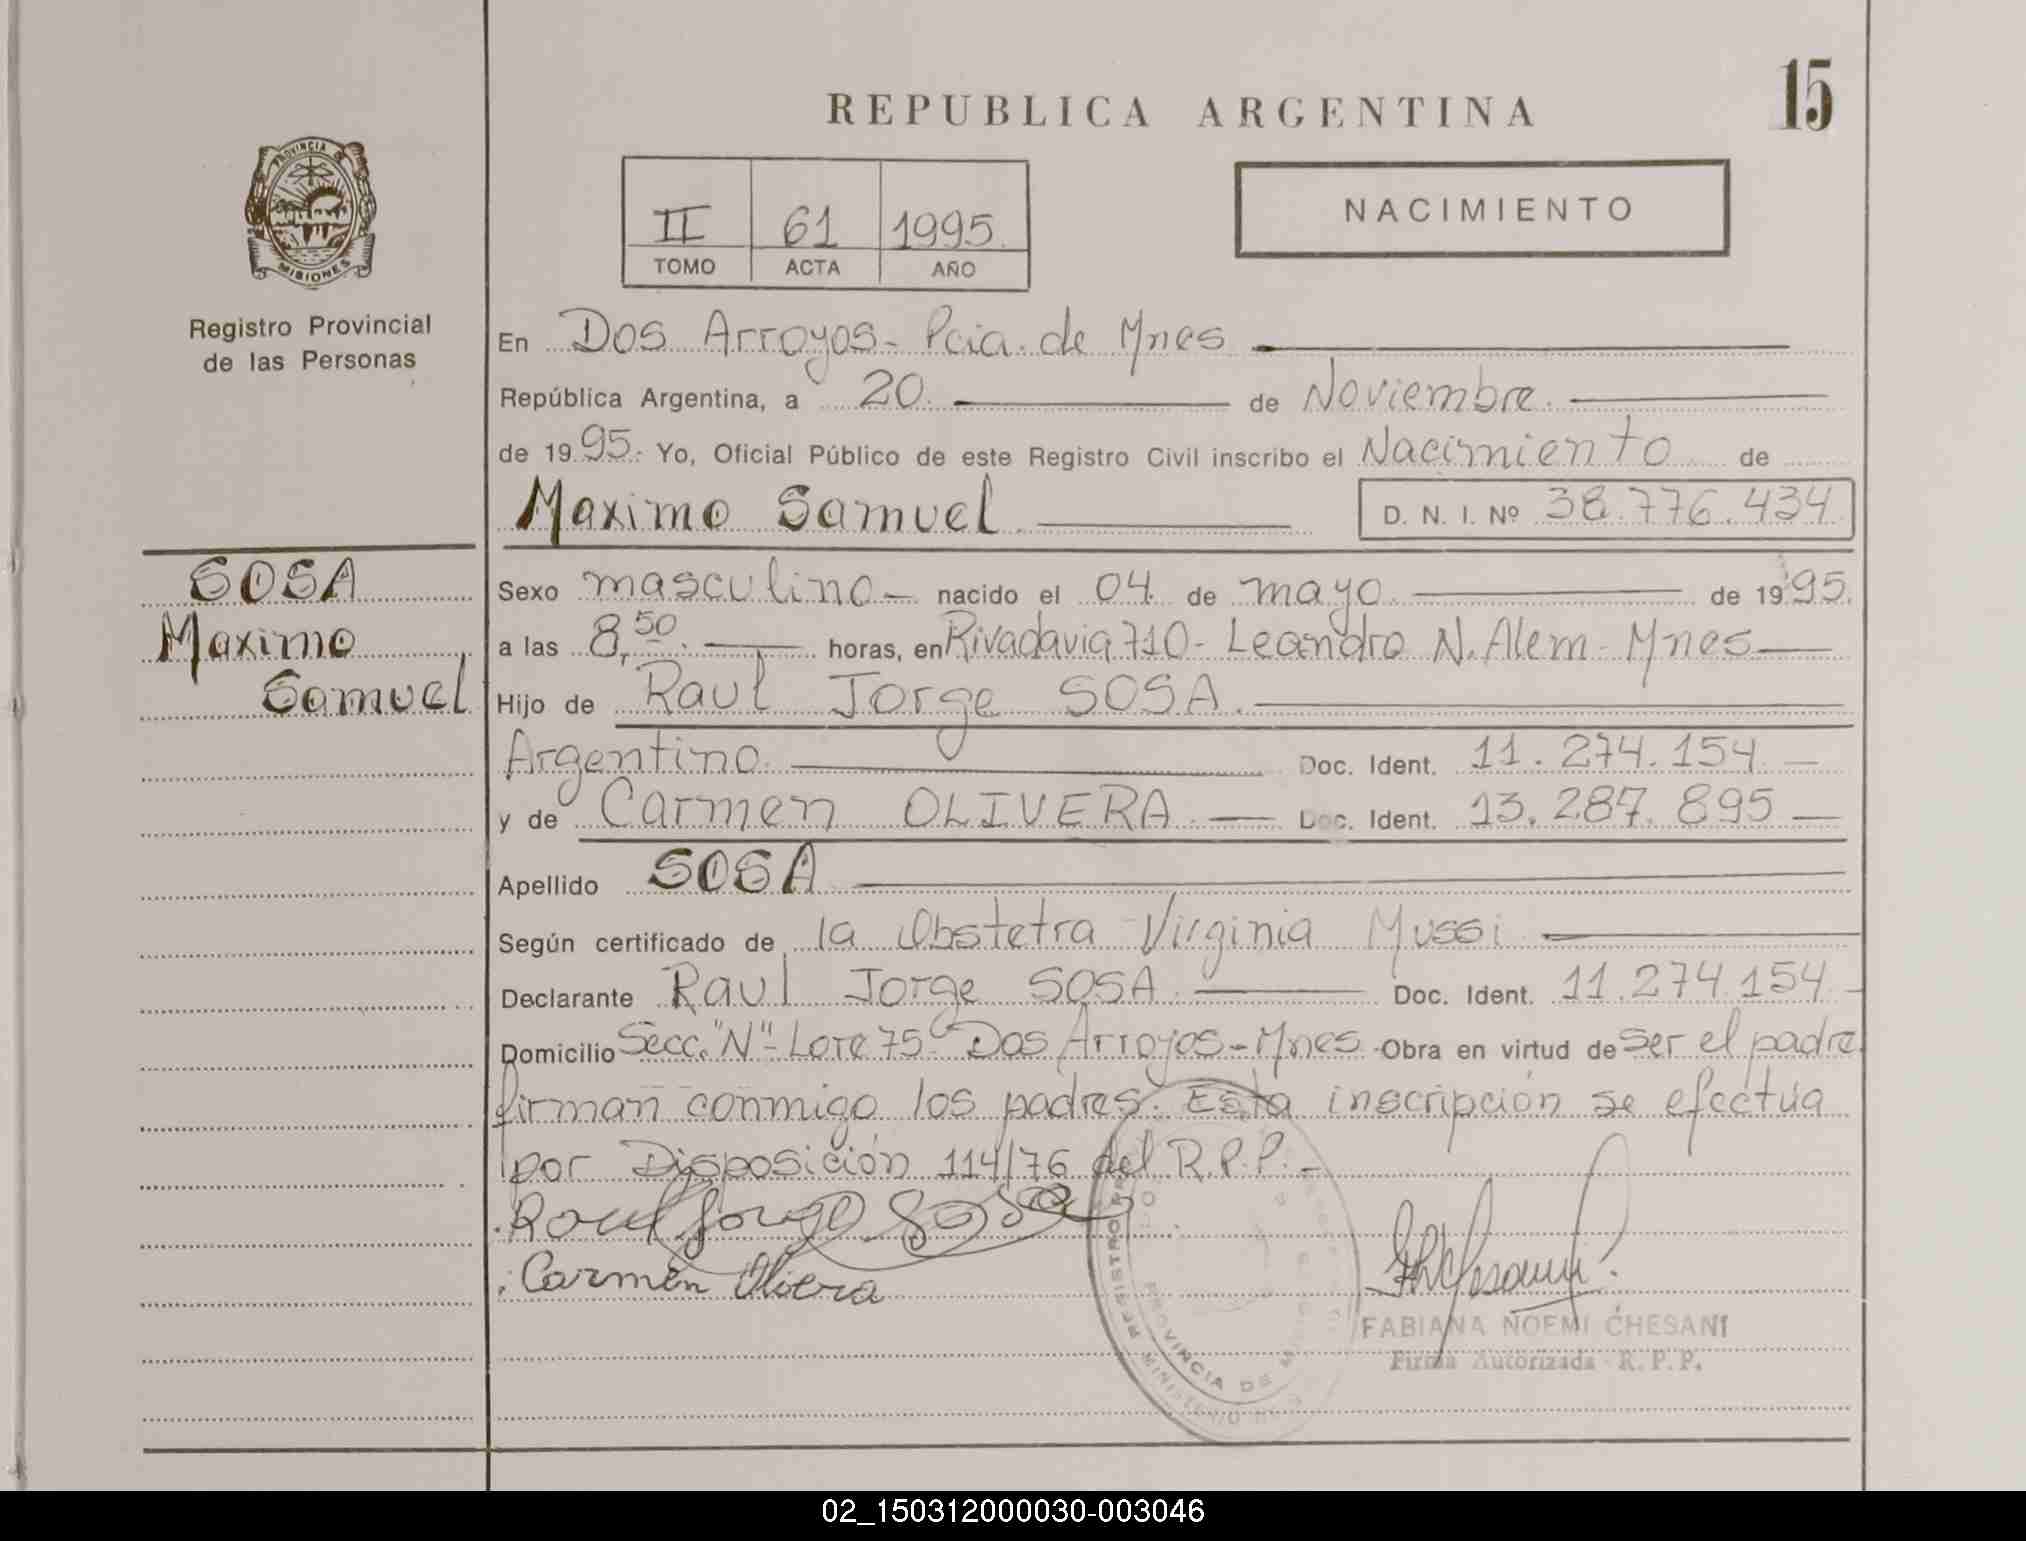 15
REPUBLICA ARGENTINA
II 61 1995
TOMO ACTA AÑO
NACIMIENTO
PROVINCIA DE
MISIONES
Registro Provincial
de las Personas
En Dos Arroyos - Pcia. de Mnes
República Argentina, a 20 de Noviembre.
de 1995.- Yo, Oficial Público de este Registro Civil inscribo el Nacimiento de
Maximo Samuel D. N. I. Nº 38.776.434
SOSA
Maximo
Samuel
Sexo masculino - nacido el 04 de mayo de 1995.
a las 8,50 horas, en Rivadavia 710 - Leandro N. Alem - Mnes
Hijo de Raul Jorge SOSA.
Argentino. Doc. Ident. 11.274.154
y de Carmen OLIVERA Doc. Ident. 13.287.895
Apellido SOSA
Según certificado de la Obstetra Virginia Mussi
Declarante Raul Jorge SOSA Doc. Ident. 11.274.154
Domicilio Secc. "N" - Lote 75 Dos Arroyos - Mnes Obra en virtud de ser el padre
firman conmigo los padres. Esta inscripción se efectúa
por Disposición 114/76 del R.P.P. -
Raul Jorge Sosa
Carmen Olivera
REGISTRO
PROVINCIA DE
MINISTERIO
FABIANA NOEMI CHESANI
Firma Autorizada R. P. P.
02_150312000030-003046